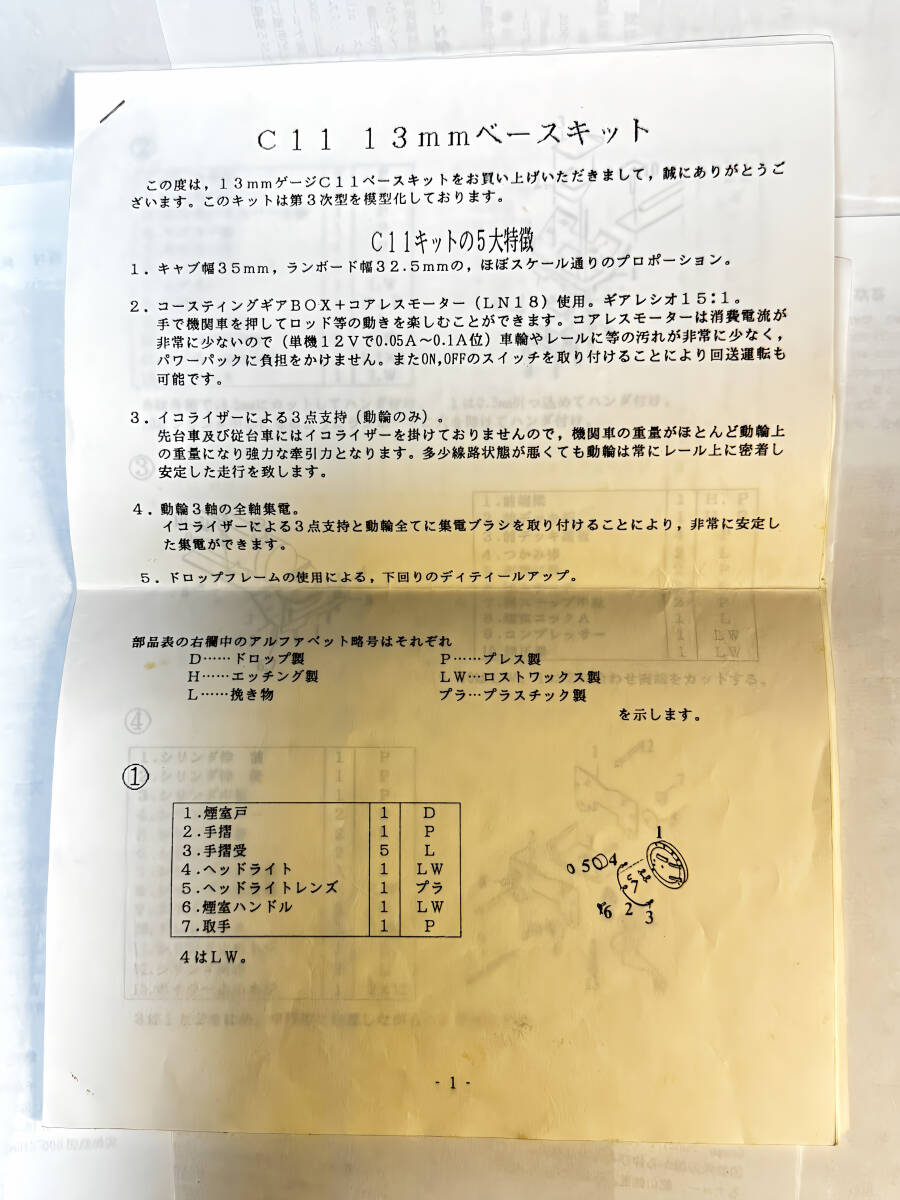 C11 13mmベースキット
この度は,13mmゲージC11ベースキットをお買い上げいただきまして,誠にありがとうご
ざいます。このキットは第3次型を模型化しております。
C11キットの5大特徴
1.キャブ幅35mm,ランボード幅32.5mmの,ほぼスケール通りのプロポーション。
2.コースティングギアBOX+コアレスモーター(LN18)使用。ギアレシオ15:1。
手で機関車を押してロッド等の動きを楽しむことができます。コアレスモーターは消費電流が
非常に少ないので(単機12Vで0.05A〜0.1A位)車輪やレールに等の汚れが非常に少なく,
パワーパックに負担をかけません。またON,OFFのスイッチを取り付けることにより回送運転も
可能です。
3.イコライザーによる3点支持(動輪のみ)。
先台車及び従台車にはイコライザーを掛けておりませんので,機関車の重量がほとんど動輪上
の重量になり強力な牽引力となります。多少線路状態が悪くても動輪は常にレール上に密着し
安定した走行を致します。
4.動輪3軸の全軸集電。
イコライザーによる3点支持と動輪全てに集電ブラシを取り付けることにより,非常に安定し
た集電ができます。
5.ドロップフレームの使用による,下回りのディティールアップ。
部品表の右欄中のアルファベット略号はそれぞれ
D……ドロップ製 P……プレス製
H……エッチング製 LW…ロストワックス製
L……挽き物 プラ…プラスチック製
を示します。
①
1.煙室戸 1 D
2.手摺 1 P
3.手摺受 5 L
4.ヘッドライト 1 LW
5.ヘッドライトレンズ 1 プラ
6.煙室ハンドル 1 LW
7.取手 1 P
4はLW。
1
5 4
7
6 2 3
- 1 -